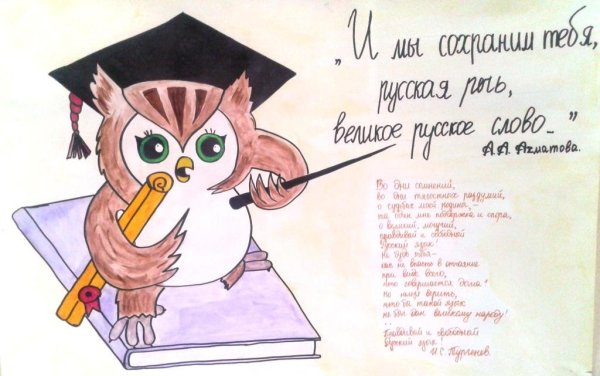 „И мы сохраним тебя,
русская речь,
великое русское слово..."
А.А. Ахматова.
Во дни сомнений,
во дни тягостных раздумий,
о судьбах моей родины,—
ты один мне поддержка и опора,
о великий, могучий,
правдивый и свободный
Русский язык!
Не будь тебя—
как не впасть в отчаяние
при виде всего,
что совершается дома!
Но нельзя верить,
чтобы такой язык
не был дан великому народу!
...
Правдивый и свободный
русский язык!
И.С. Тургенев.